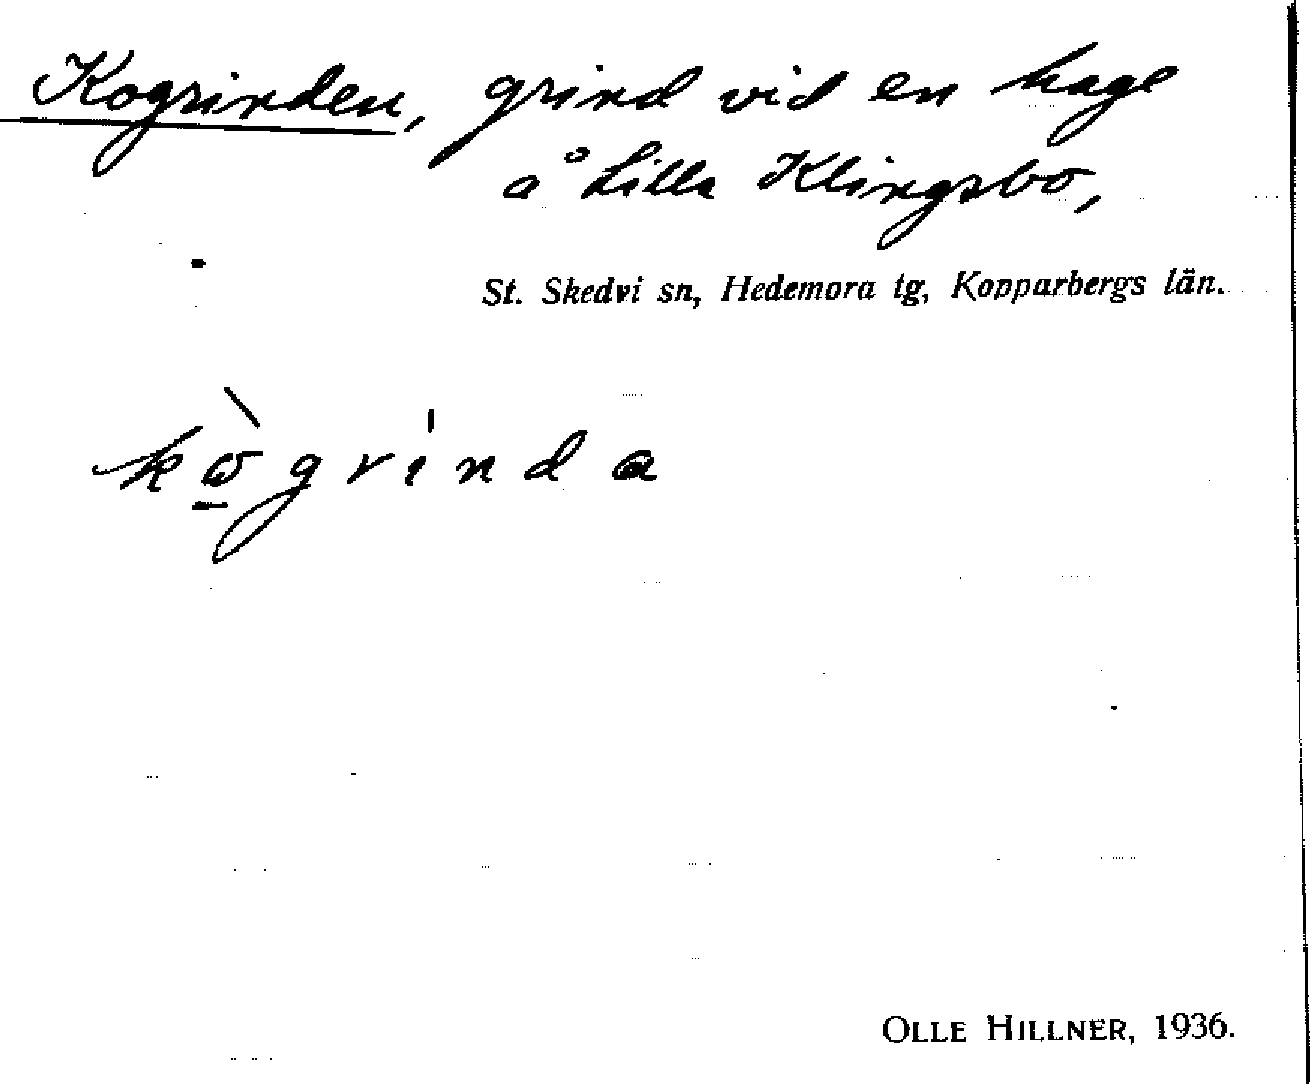 Kogrinden, grind vid en hage
å Lilla Klingsbo,
St. Skedvi sn, Hedemora tg, Kopparbergs län.
kὼ̱grinda
OLLE HILLNER, 1936.